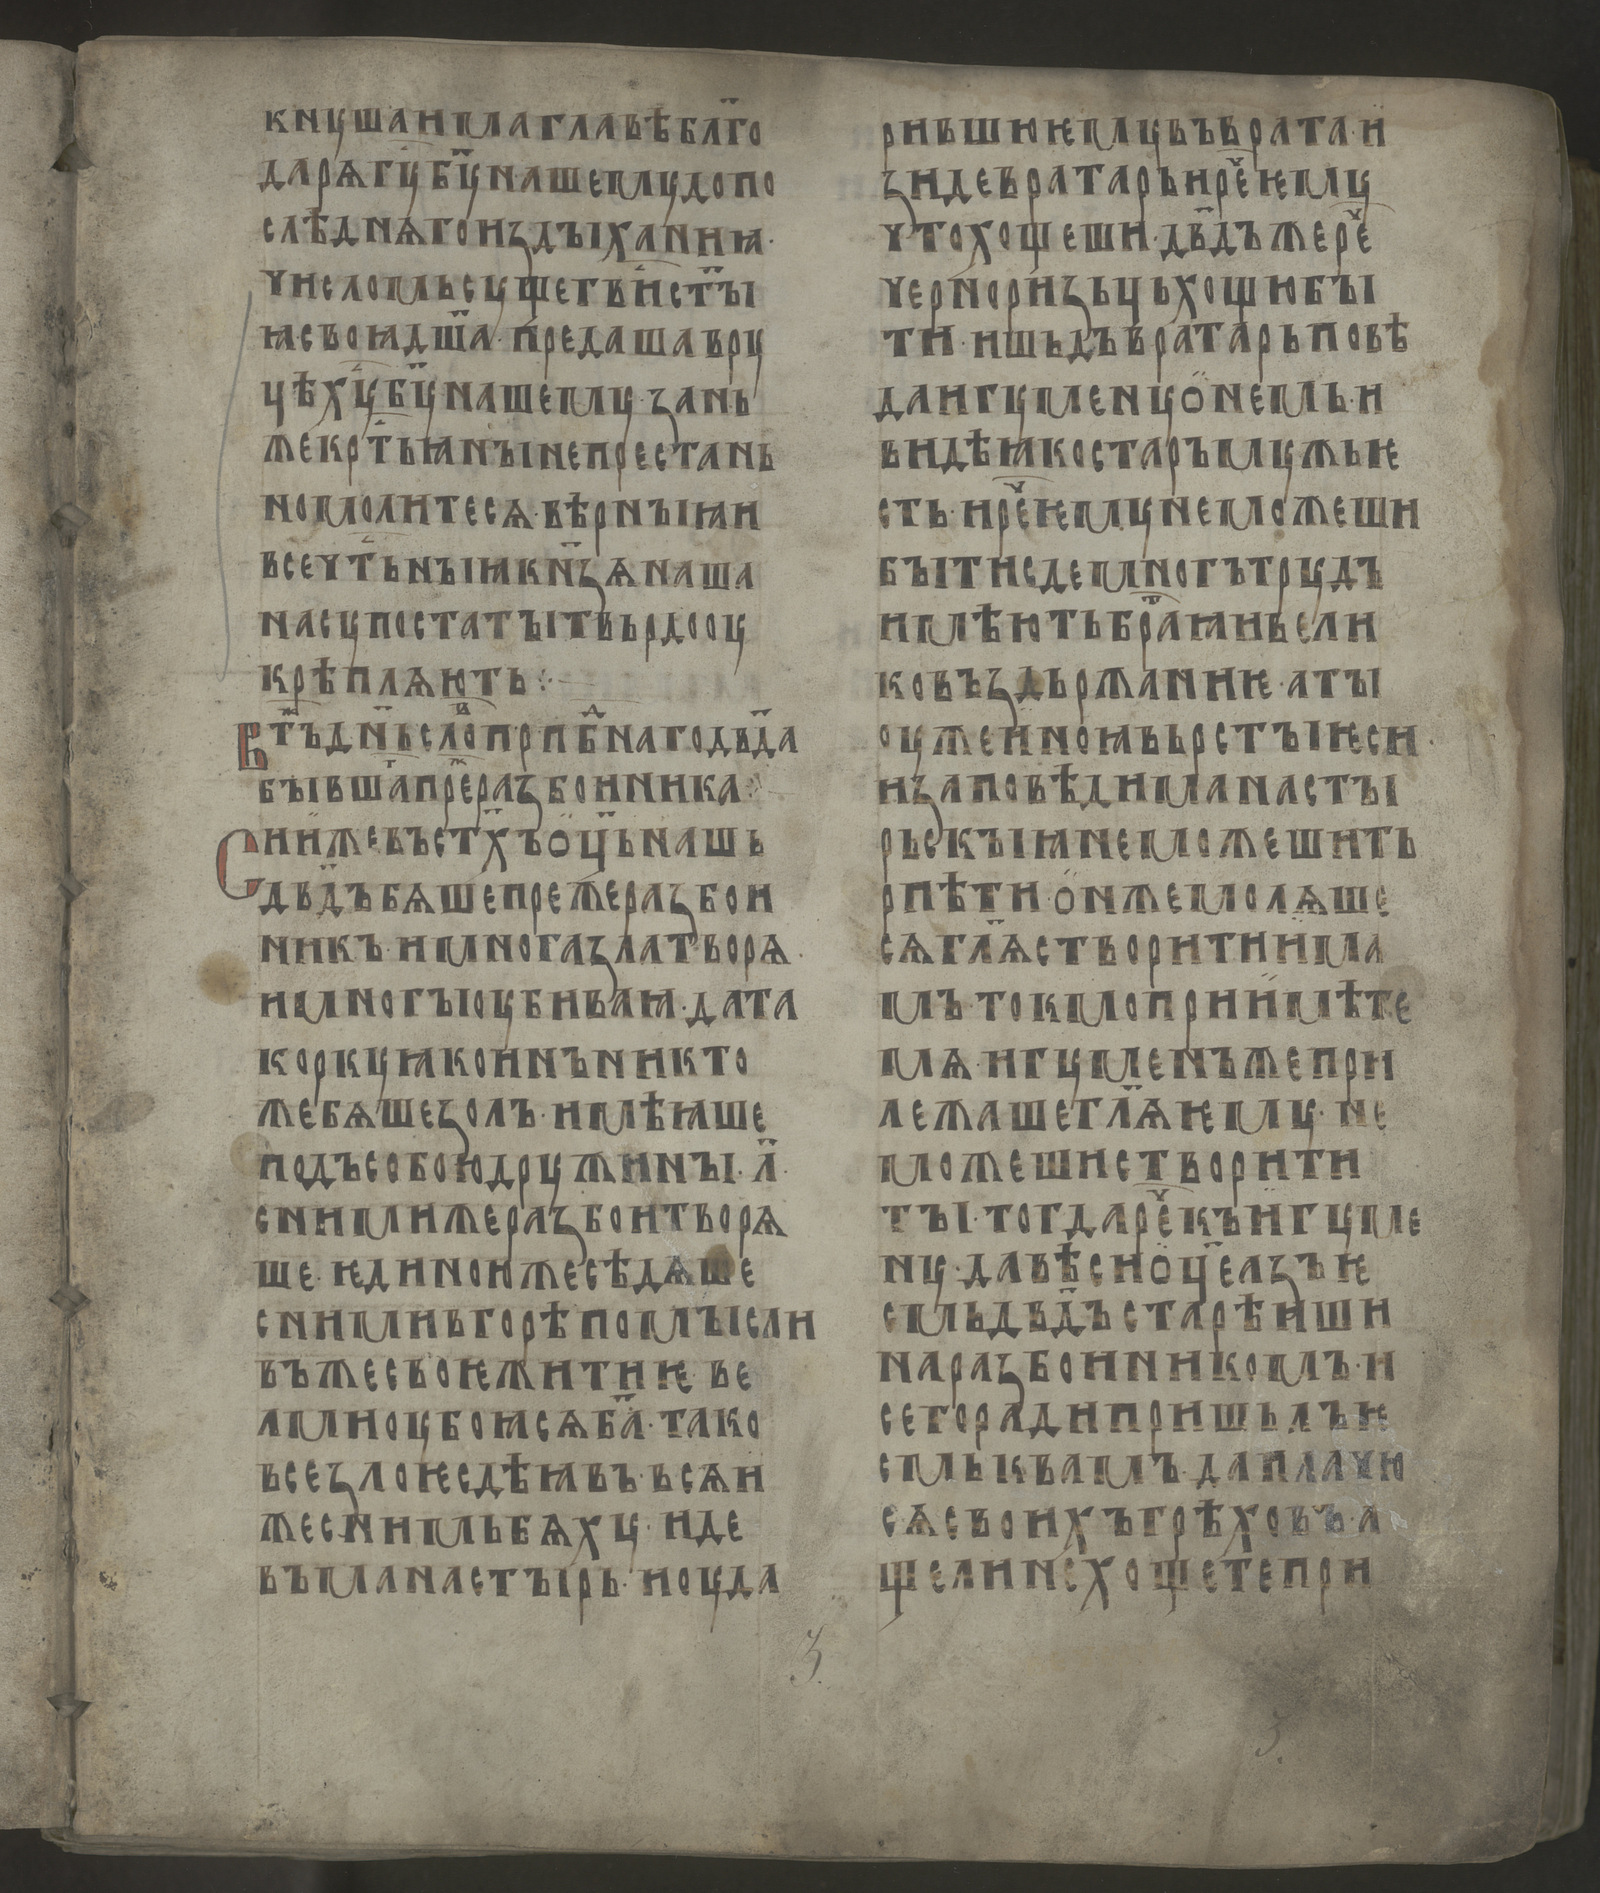 кнꙋшаимаглавѣбл҃го
дарѧгꙋб҃ꙋнашемꙋдопо
слѣднѧгоиꙁдыханиꙗ·
числомьсꙋщегвист҃ы
ꙗсвоꙗдш҃а·предашаврꙋ
цѣхꙋб҃ꙋнашемꙋ·ꙁань
жекрт҃ьꙗнынепрестань
номолитесѧ·вѣрныꙗи
всечт҃ьныꙗкн҃ꙁѧнаша
насꙋпостатытвьрдооу
крѣплѧють⁘
Вт҃ъдн҃ьслⷪ҇вприпⷣб҃нагодв҃да
бывшагⷤ҇преⷤ҇раꙁбоиника⁘
Сиижевъст҃хъоц҃ьнашь
дв҃дъбѧшепрежераꙁбои
никъ·имногаꙁлатворѧ·
имногыоубиваꙗ·дата
коркꙋꙗкоинъникто
жебѧшеꙁолъ·имѣꙗше
подъсобоюдрꙋжины·л҃·
снимижераꙁбоитворѧ
ше·ѥдиноюжесѣдѧше
снимивгорѣпомысли
въжесвоѥжитиѥ·ве
лмиоубоꙗсѧб҃а·тако
всеꙁлоѥсдѣꙗвъ·всѧи
жеснимьбѧхꙋ·иде
въманастырь·иоуда
рившюѥмꙋвъврата·и
ꙁидевратарьиреⷱ҇ѥмꙋ
чтохощеши·дв҃дъжереⷱ҇
чернориꙁьцьхощюбы
ти·ишьдъвратарьповѣ
даигꙋменꙋонемь·и
видѣꙗкостаръмꙋжьѥ
сть·иреⷱ҇ѥмꙋнеможеши
бытисдемногътрꙋдъ
имѣютьбра҃ꙗивели
ковъꙁдьржаниѥ·аты
оужеиноꙗвьрстыѥси·
иꙁаповѣдиманасты
рьскыꙗнеможешить
рпѣти·онжемолѧше
сѧгл҃ѧстворитиима
мъ·токмоприимѣте
мѧ·игꙋменъжепри
лежашегл҃ѧѥмꙋ·не
можешистворити
ты·тогдареⷱ҇къигꙋме
нꙋ·давѣсиоц҃еаꙁъѥ
смьдв҃дъстарѣиши
нараꙁбоиникомъ·и
сегорадипришьлъѥ
смькваmъ·даплачю
сѧсвоихъгрѣховъ·а
щелинехощетепри
З
З.